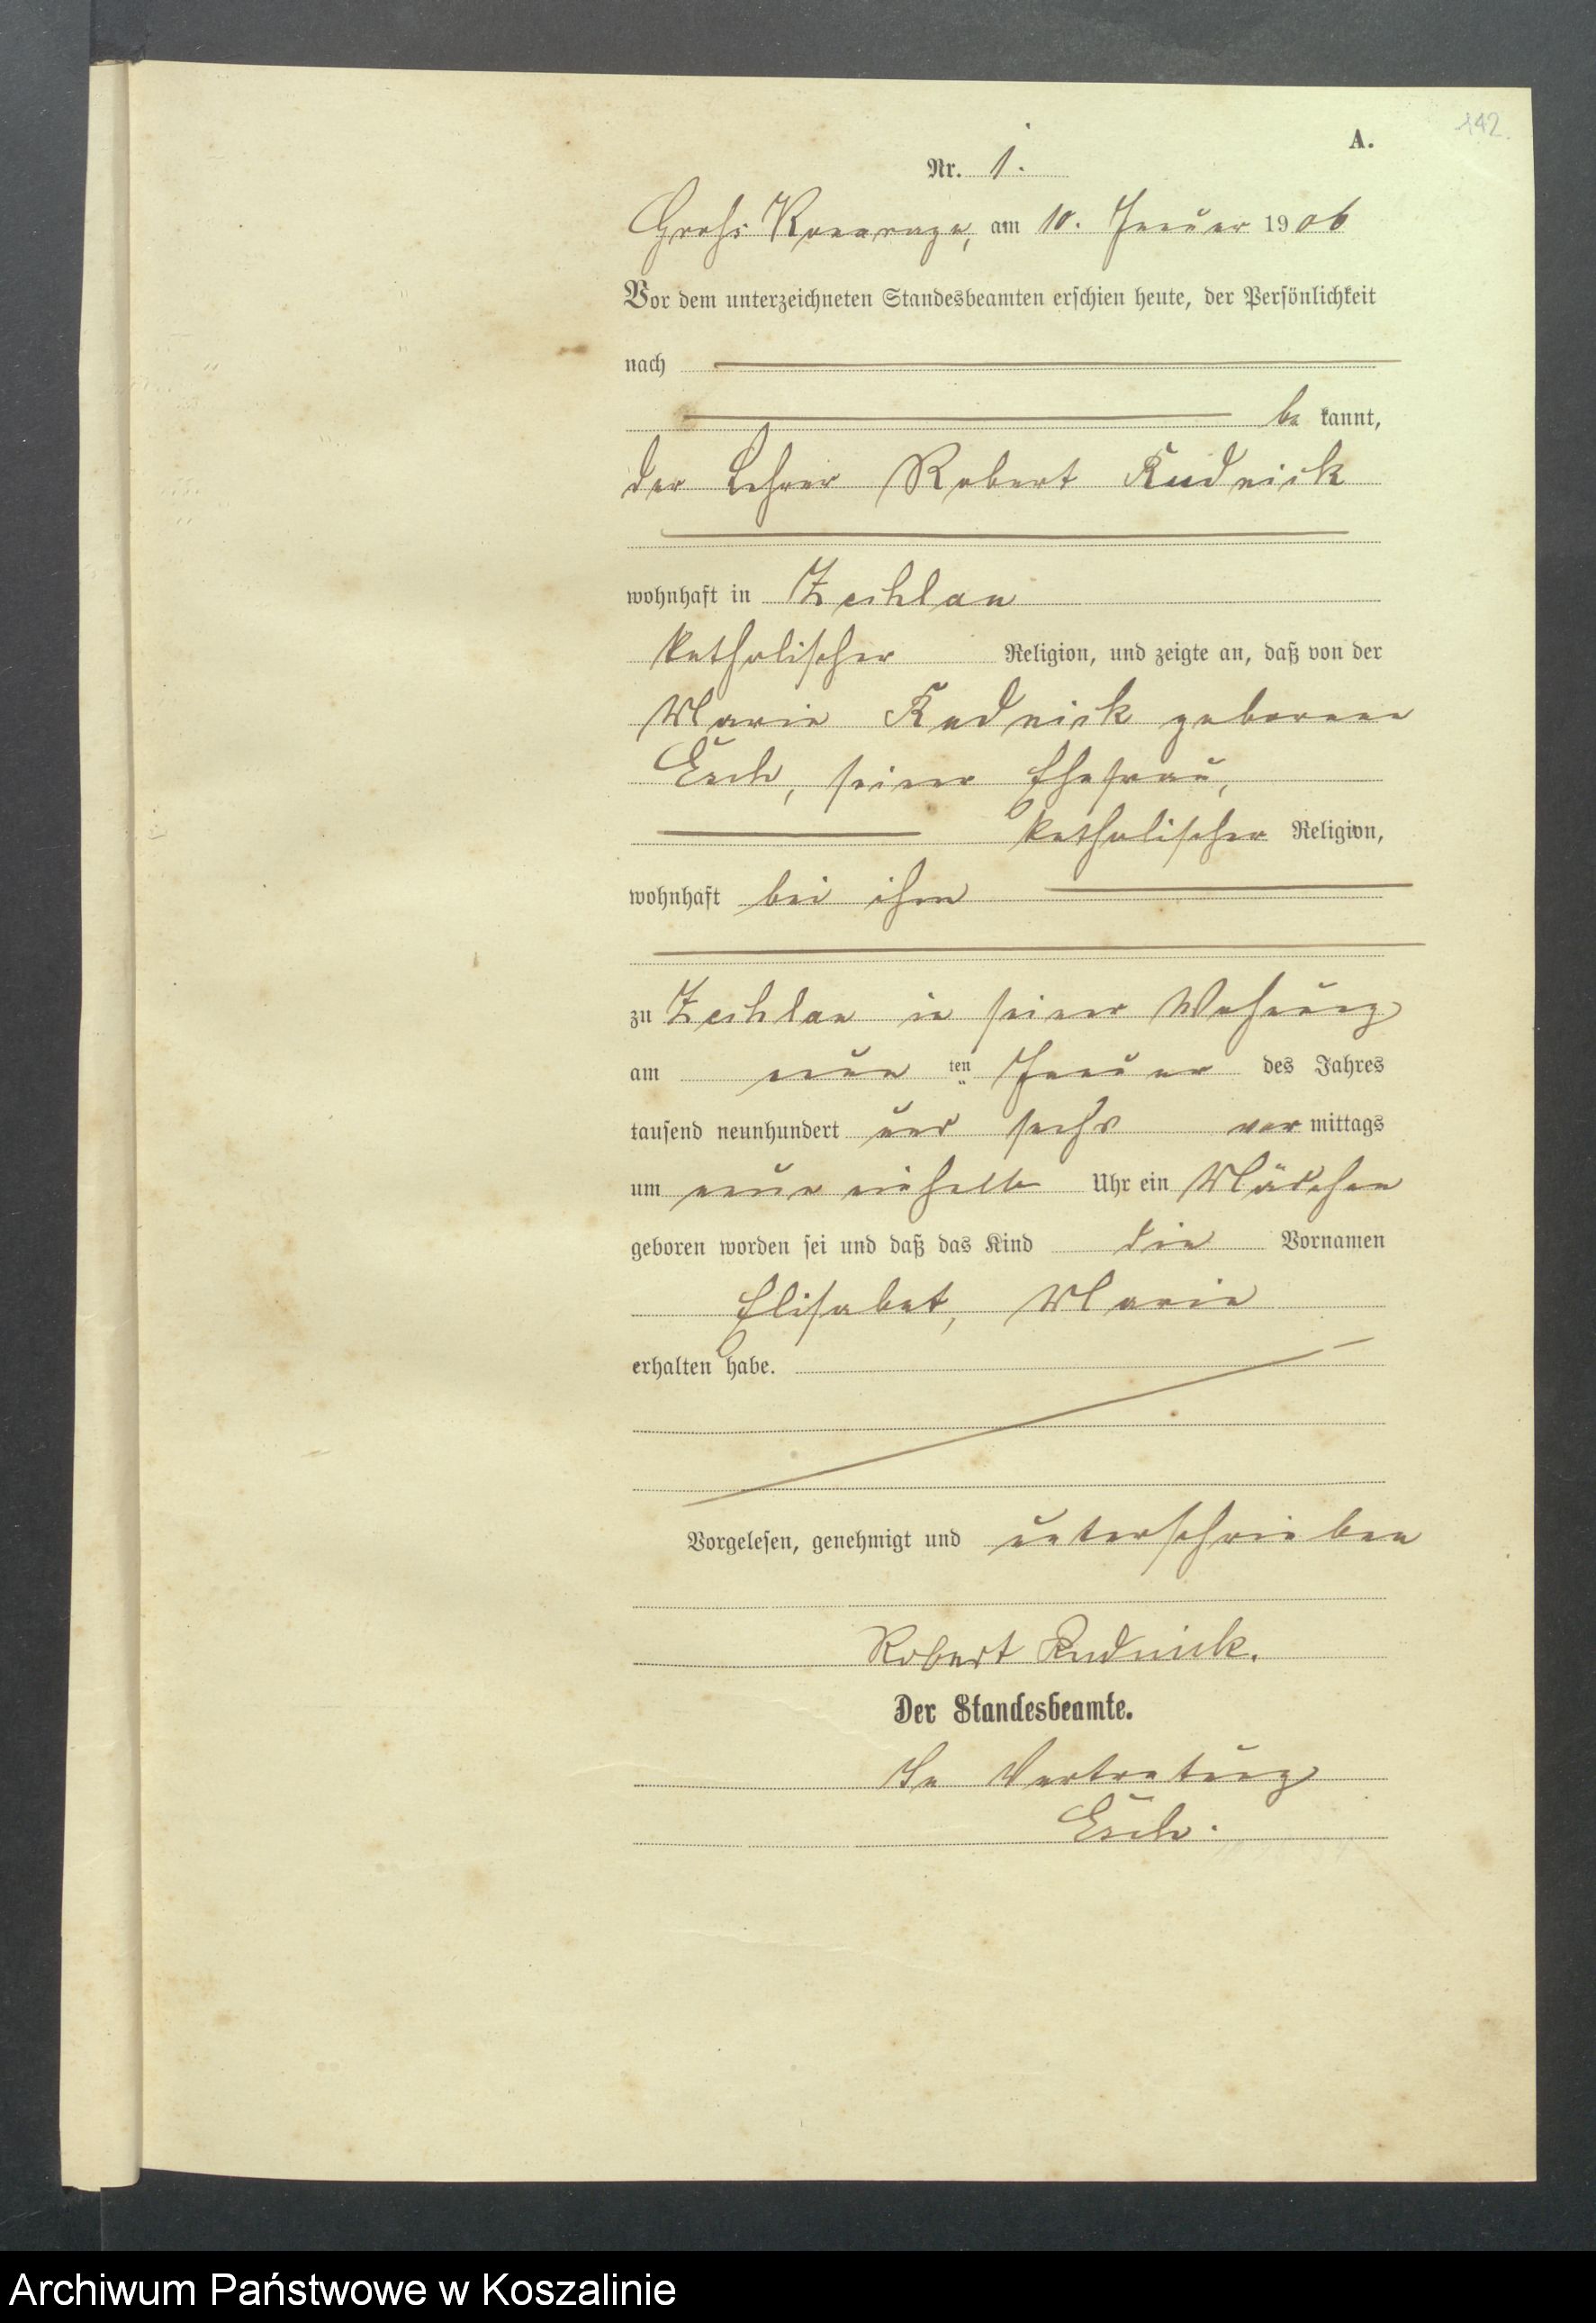 142.
A.
Nr. 1.
Groß Konarczyn, am 10. Januar 1906
Vor dem unterzeichneten Standesbeamten erschien heute, der Persönlichkeit
nach
be kannt,
der Lehrer Robert Rudnick
wohnhaft in Zechlau
katholischer Religion, und zeigte an, daß von der
Marie Rudnick geborenen
Esch, seiner Ehefrau,
katholischer Religion,
wohnhaft bei ihm
zu Zechlau in seiner Wohnung
am neun ten Januar des Jahres
tausend neunhundert und sechs vor mittags
um neun einhalb Uhr ein Mädchen
geboren worden sei und daß das Kind die Vornamen
Elisabet, Marie
erhalten habe.
Vorgelesen, genehmigt und unterschrieben
Robert Rudnick.
Der Standesbeamte.
In Vertretung
Esch.
Archiwum Państwowe w Koszalinie